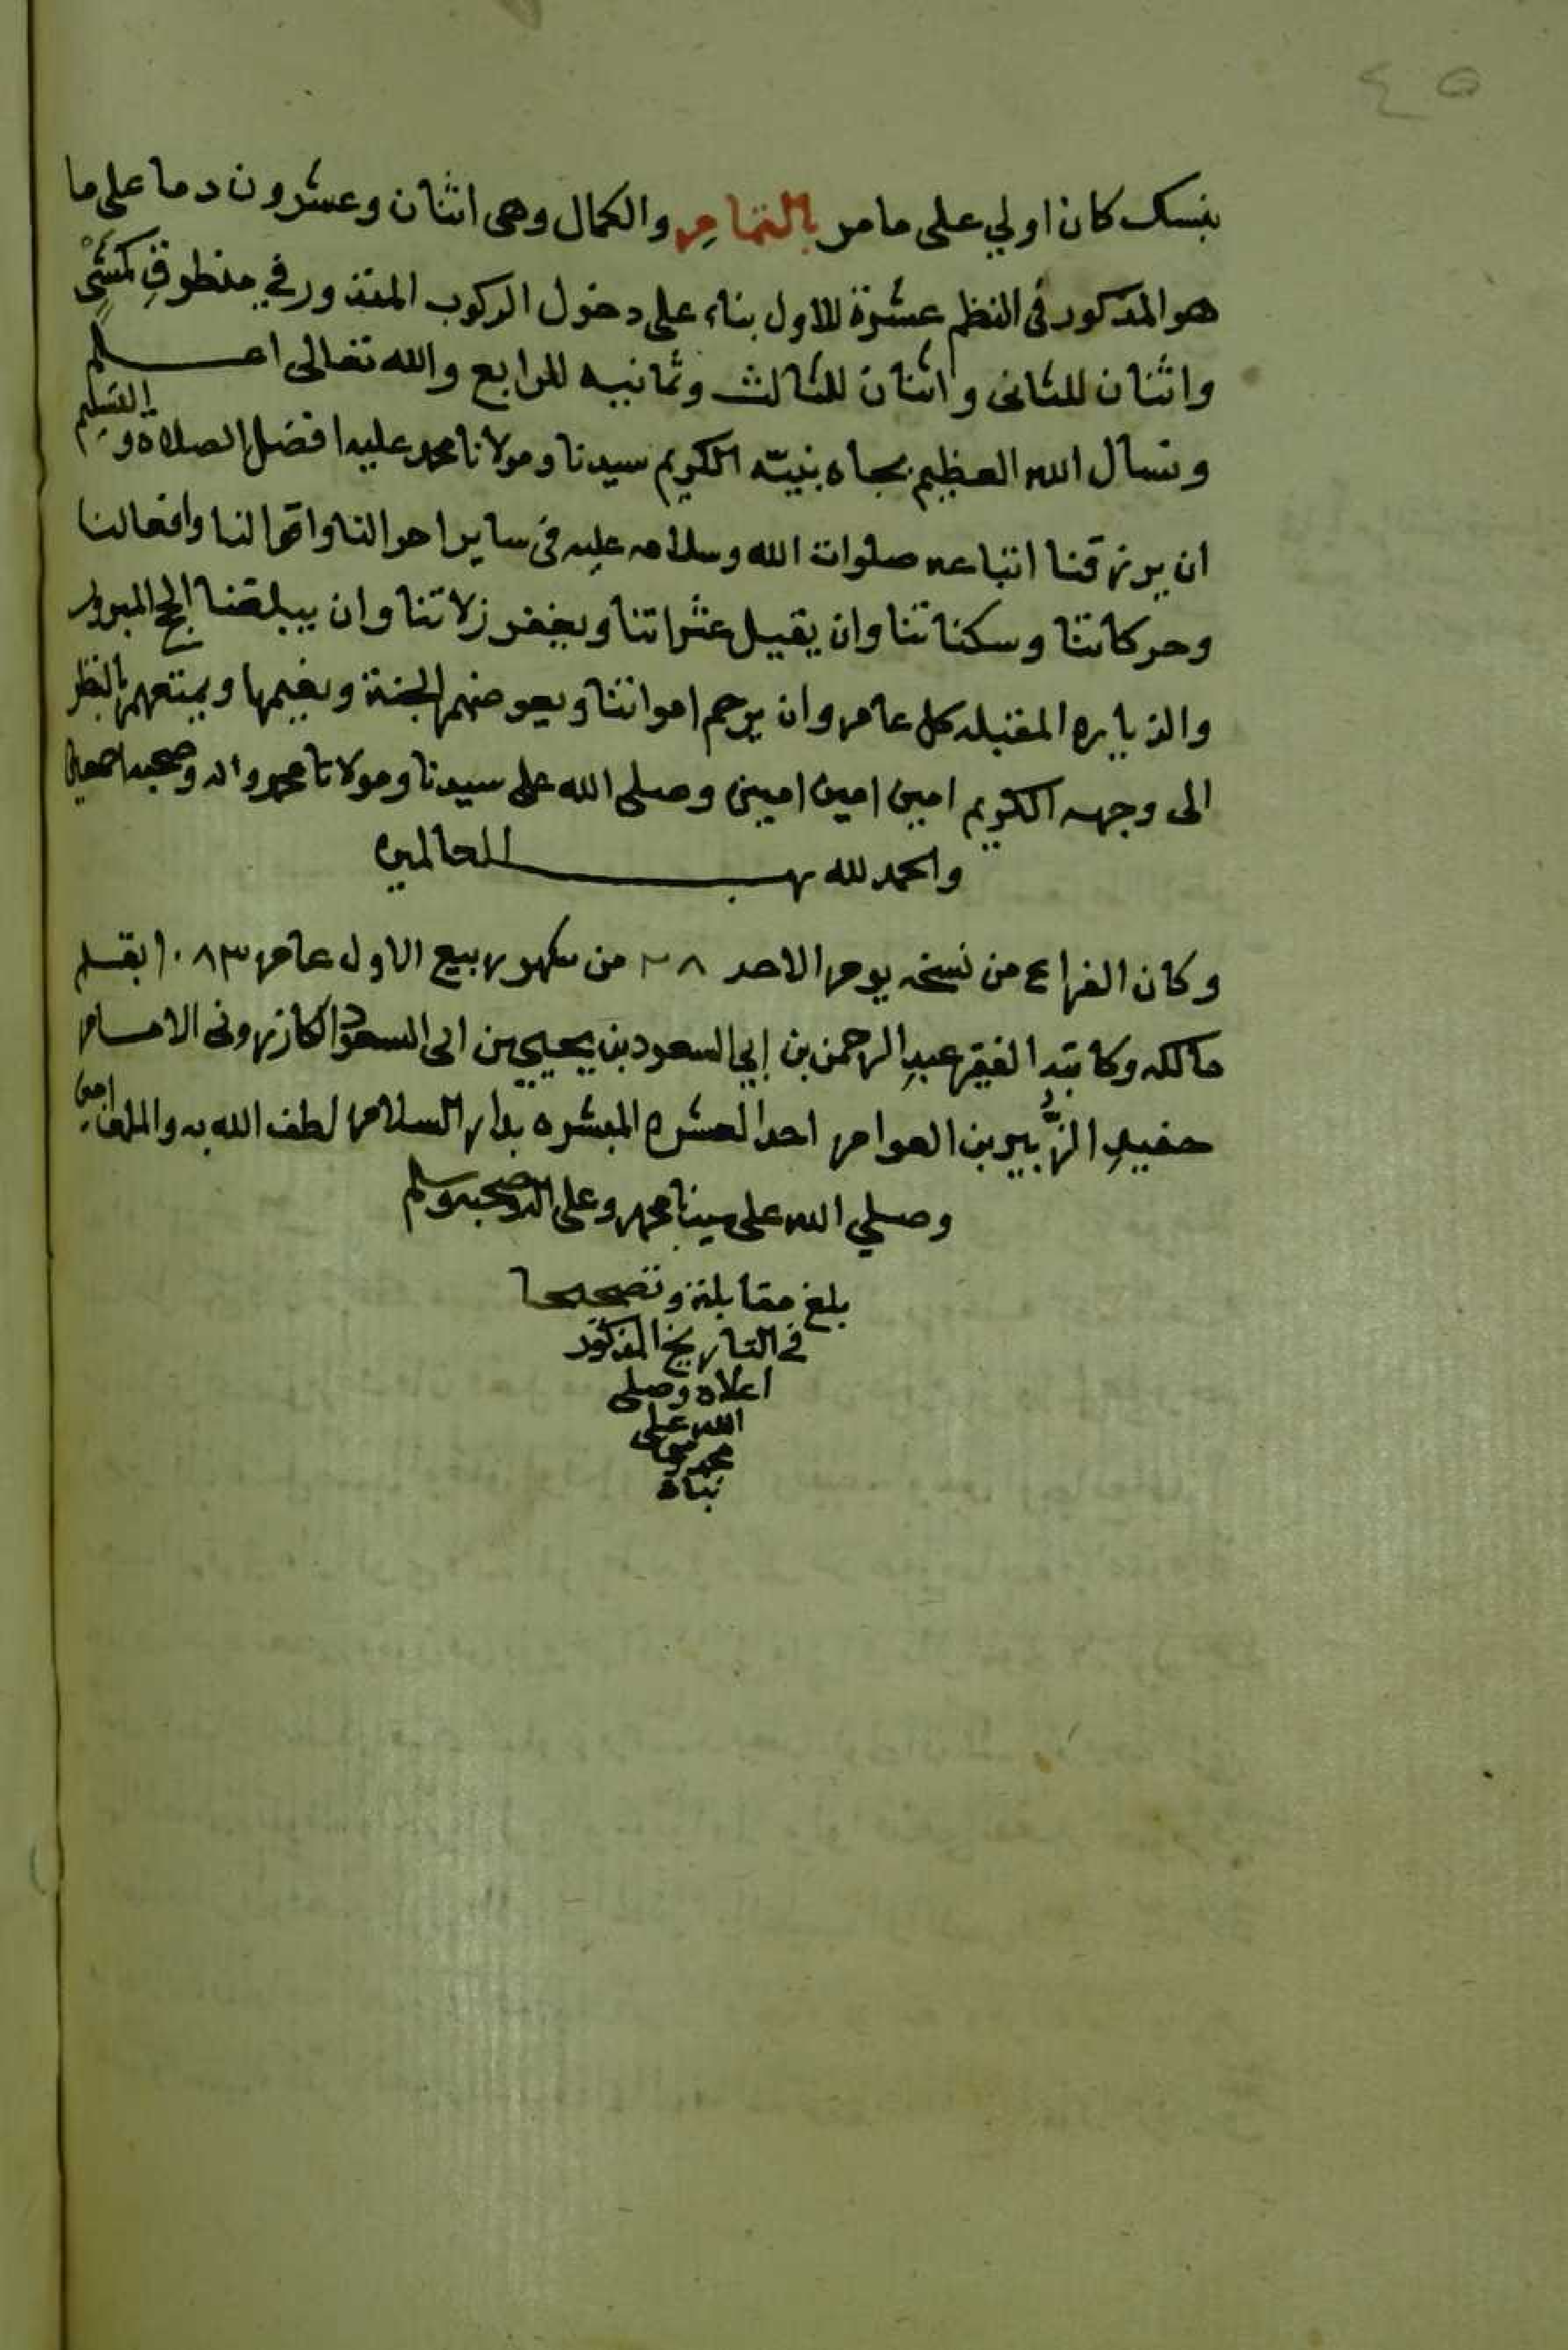 ٤٥
بنسك كان اولي على مامر بالتمام والكمال وهى اثنان وعشرون دما على ما
هو المذكور فى النظم عشرة للاول بناء على دخول الركوب المنذور في منطوق كمشي
واثنان للثانى واثنان للثالث وثمانيه للرابع والله تعالى اعلم
ونسال الله العظيم بجاه نبيّه الكريم سيدنا ومولانا محمد عليه افضل الصلاة والتسليم
ان يرزقنا اتباعه صلوات الله وسلامه عليه فى ساير احوالنا واقوالنا وافعالنا
وحركاتنا وسكناتنا وان يقيل عثراتنا ويغفر زلاتنا وان يبلغنا الحج المبرور
والزياره المقبله كل عام وان يرحم امواتنا ويعوضهم الجنة ونعيمها ويمتعهم بالنظر
الى وجهه الكريم امين امين امين وصلى الله على سيدنا ومولانا محمد واله وصحبه اجمعين
والحمد لله رب العالمين
وكان الفراغ من نسخه يوم الاحد ٢٨ من شهور ربيع الاول عام ١٠٨٣ بقلم
مالكه وكاتبه الفقير عبد الرحمن بن ابي السعود بن يحيي بن ابى السعود الكازرونى الامام
حفيد الزُّبير بن العوام احد العشره المبشره بدار السلام لطف الله به والملف امين
وصلي الله على سيدنا محمد وعلى اله وصحبه وسلم
بلغ مقابلة وتصحيحا
فى التاريخ المذكور
اعلاه وصلى
الله على
محمد